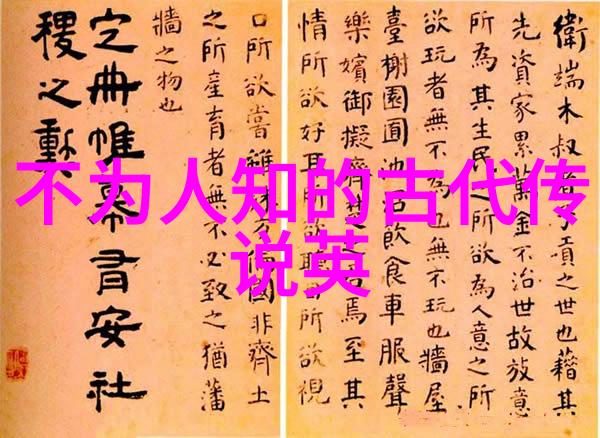 不为人知的古代传
说英
衛端木叔者子貢之世也藉其
先資家累萬金不治世故放意
所為其生民之所欲為人意之所
欲玩者無不為也無不玩也牆屋
臺榭園囿池沼飲食車服聲
樂嬪御擬齊楚之君焉至其
情所欲好耳所欲聽目所欲視
口所欲嘗雖殊方偏國非齊土
之所產育者無不必致之猶藩
牆之物也
定冊帷幕有安社
稷之勳